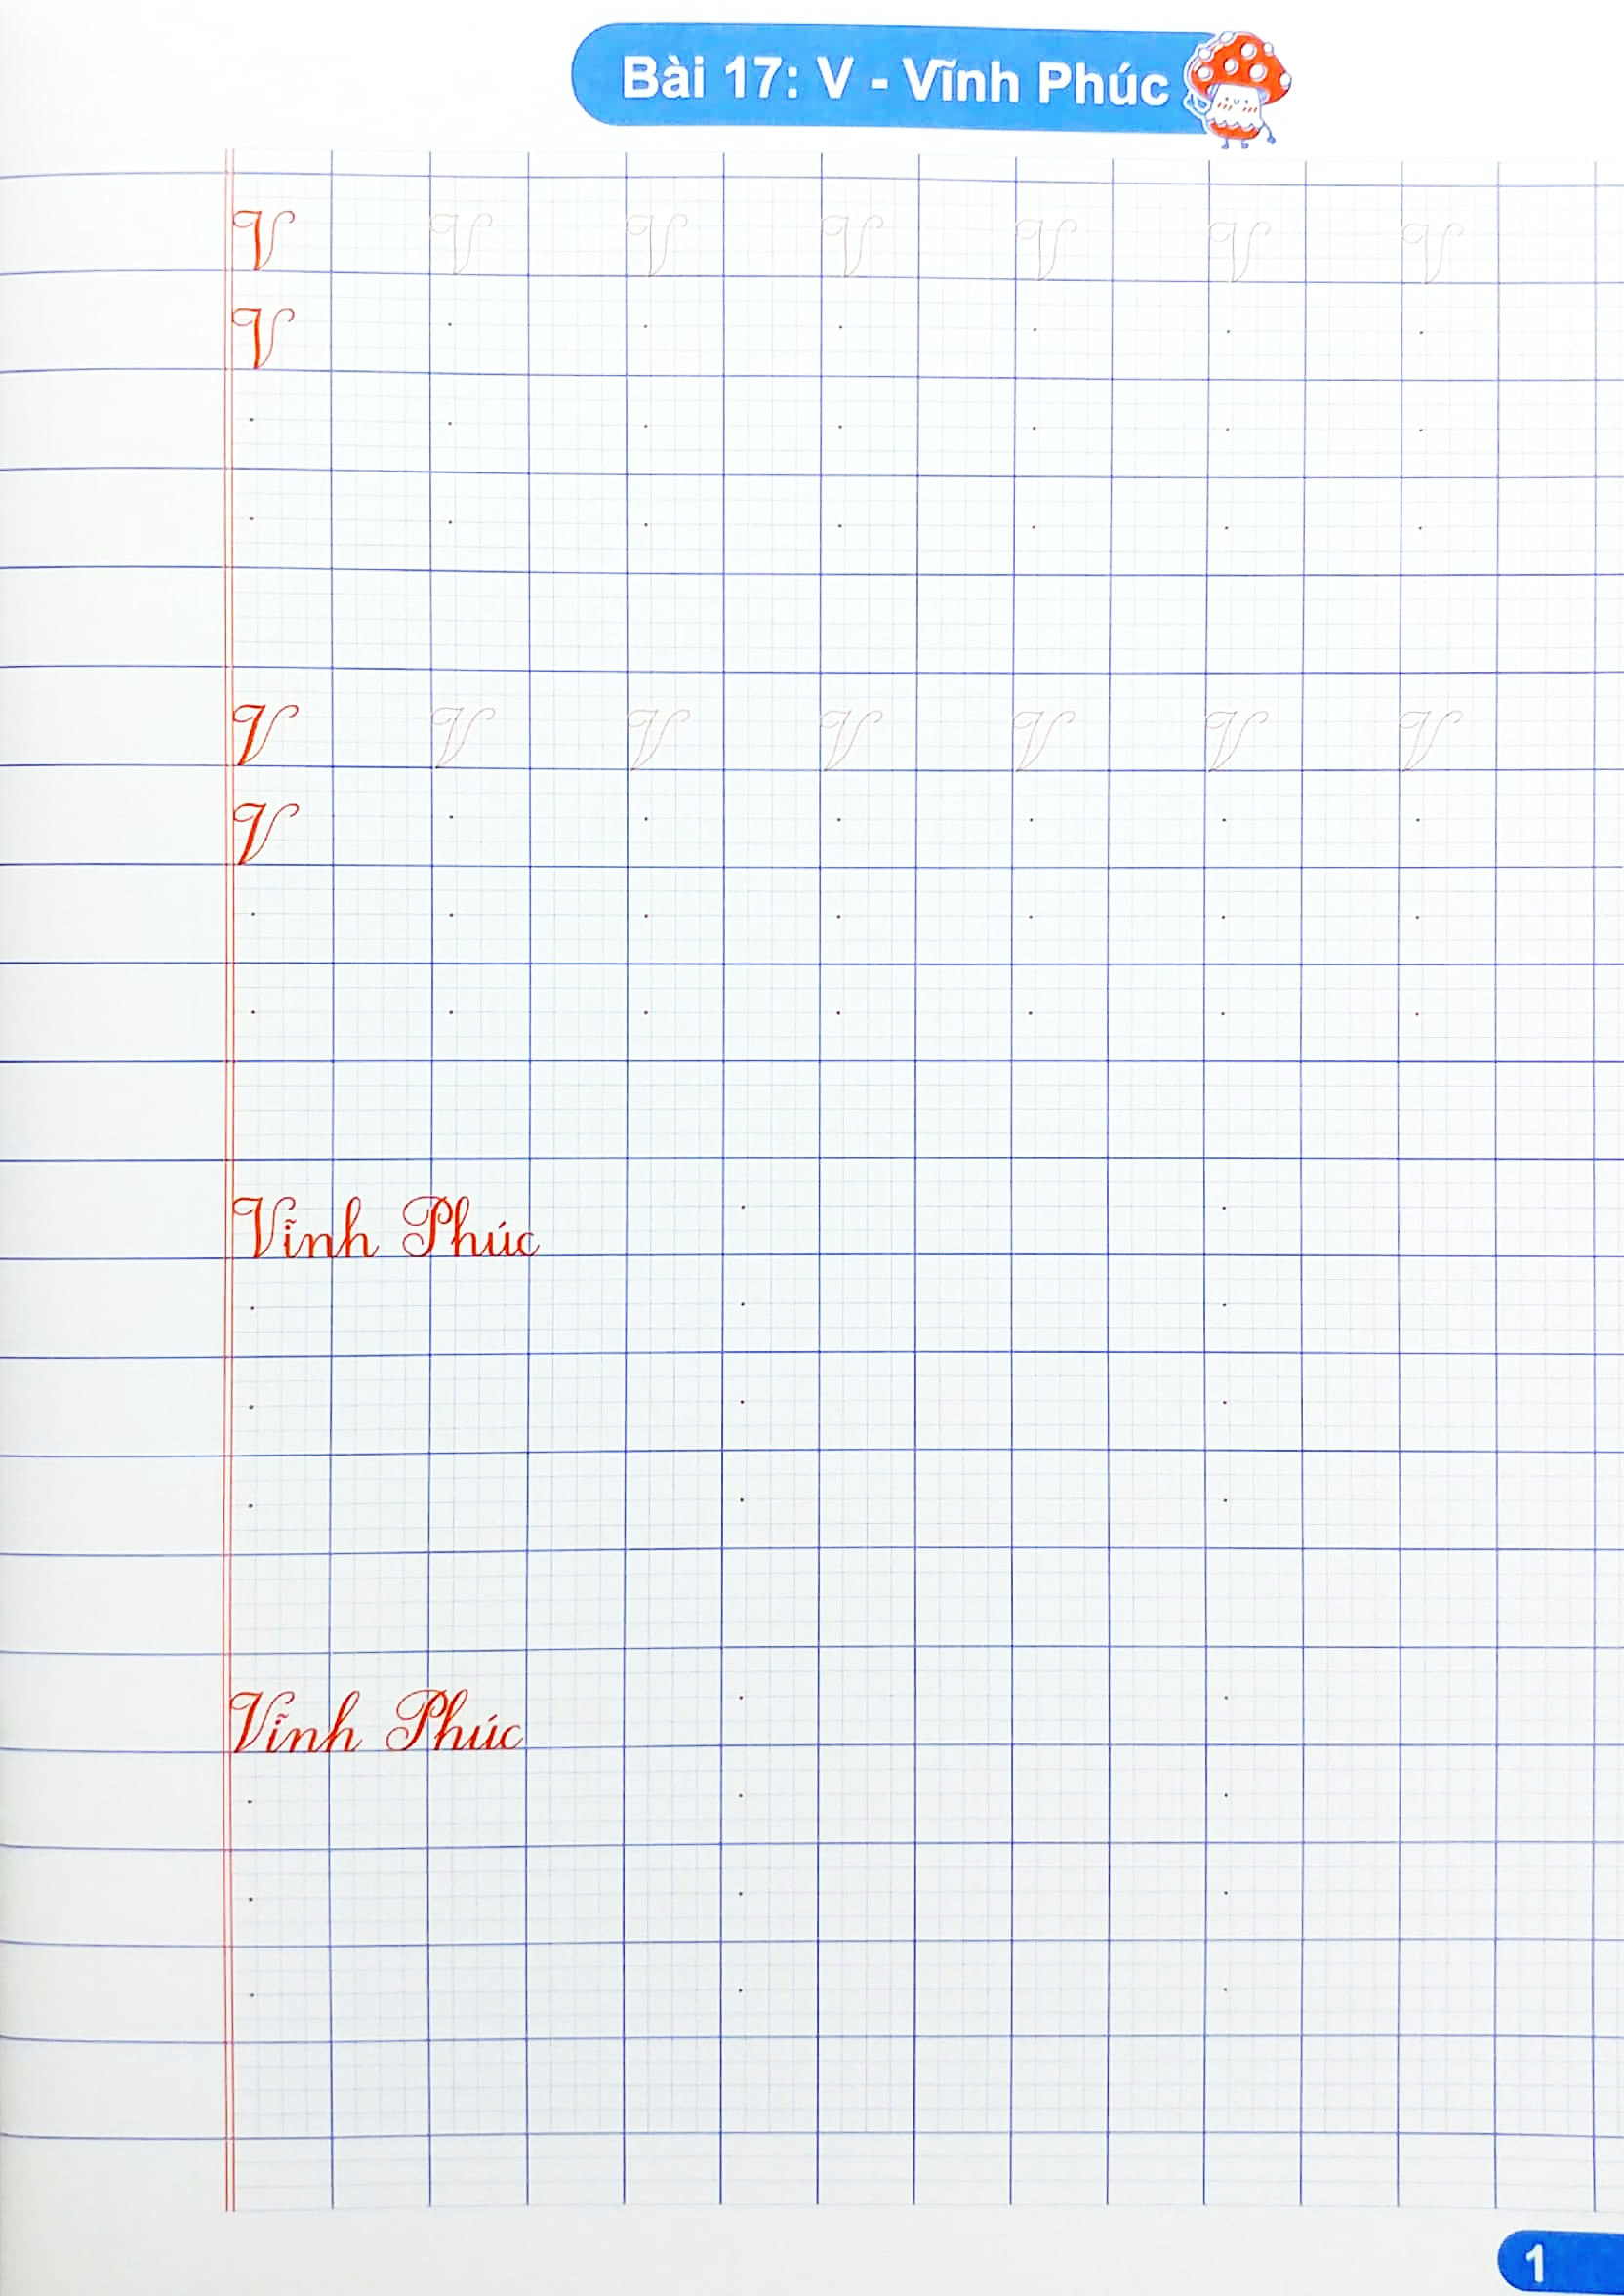 Bài 17: V - Vĩnh Phúc
V V V V V V V
V
V V V V V V V
V
Vĩnh Phúc
Vĩnh Phúc
1